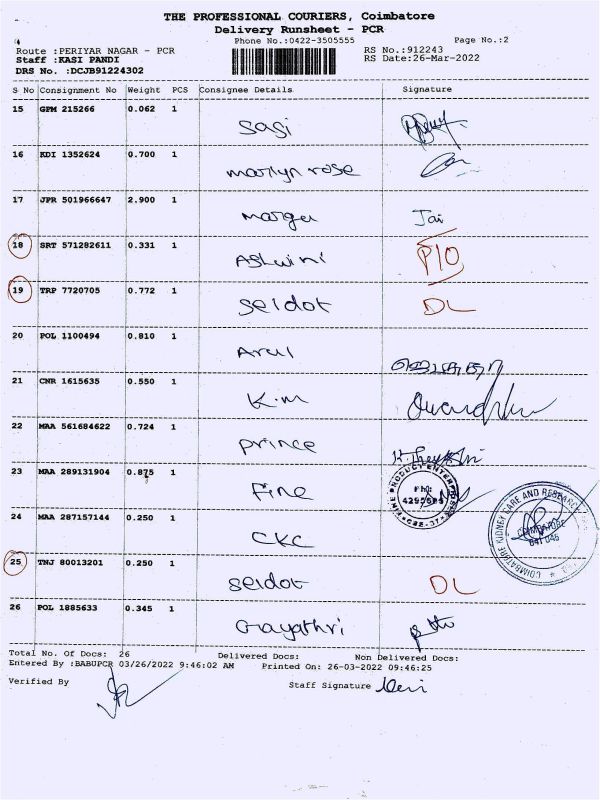 THE PROFESSIONAL COURIERS, Coimbatore
Delivery Runsheet - PCR
Phone No.:0422-3505555 Page No.:2
Route :PERIYAR NAGAR - PCR RS No.:912243
Staff :KASI PANDI RS Date:26-Mar-2022
DRS No. :DCJB91224302
S No Consignment No Weight PCS Consignee Details Signature
15 GPM 215266 0.062 1
Sasi
16 KDI 1352624 0.700 1
marlyn rose
17 JPR 501966647 2.900 1
marga Jai
18 SRT 571282611 0.331 1
Ashwini P/O
19 TRP 7720705 0.772 1
Seldot DL
20 POL 1100494 0.810 1
Arul
21 CNR 1615635 0.550 1
K.m
22 MAA 561684622 0.724 1
prince
23 MAA 289131904 0.875 1
Fine
24 MAA 287157144 0.250 1
CKC
COIMBATORE KIDNEY CARE AND RESEARCH
COIMBATORE
641 046
25 TNJ 80013201 0.250 1
Seldot DL
26 POL 1885633 0.345 1
Gayathri
Total No. Of Docs: 26 Delivered Docs: Non Delivered Docs:
Entered By :BABUPCR 03/26/2022 9:46:02 AM Printed On: 26-03-2022 09:46:25
Verified By Staff Signature